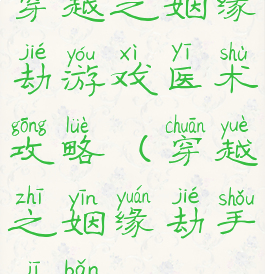 穿越之姻缘
jié yóu xì yī shù
劫游戏医术
gōng lüè chuān yuè
攻略（穿越
zhī yīn yuán jié shǒu
之姻缘劫手
jī bǎn